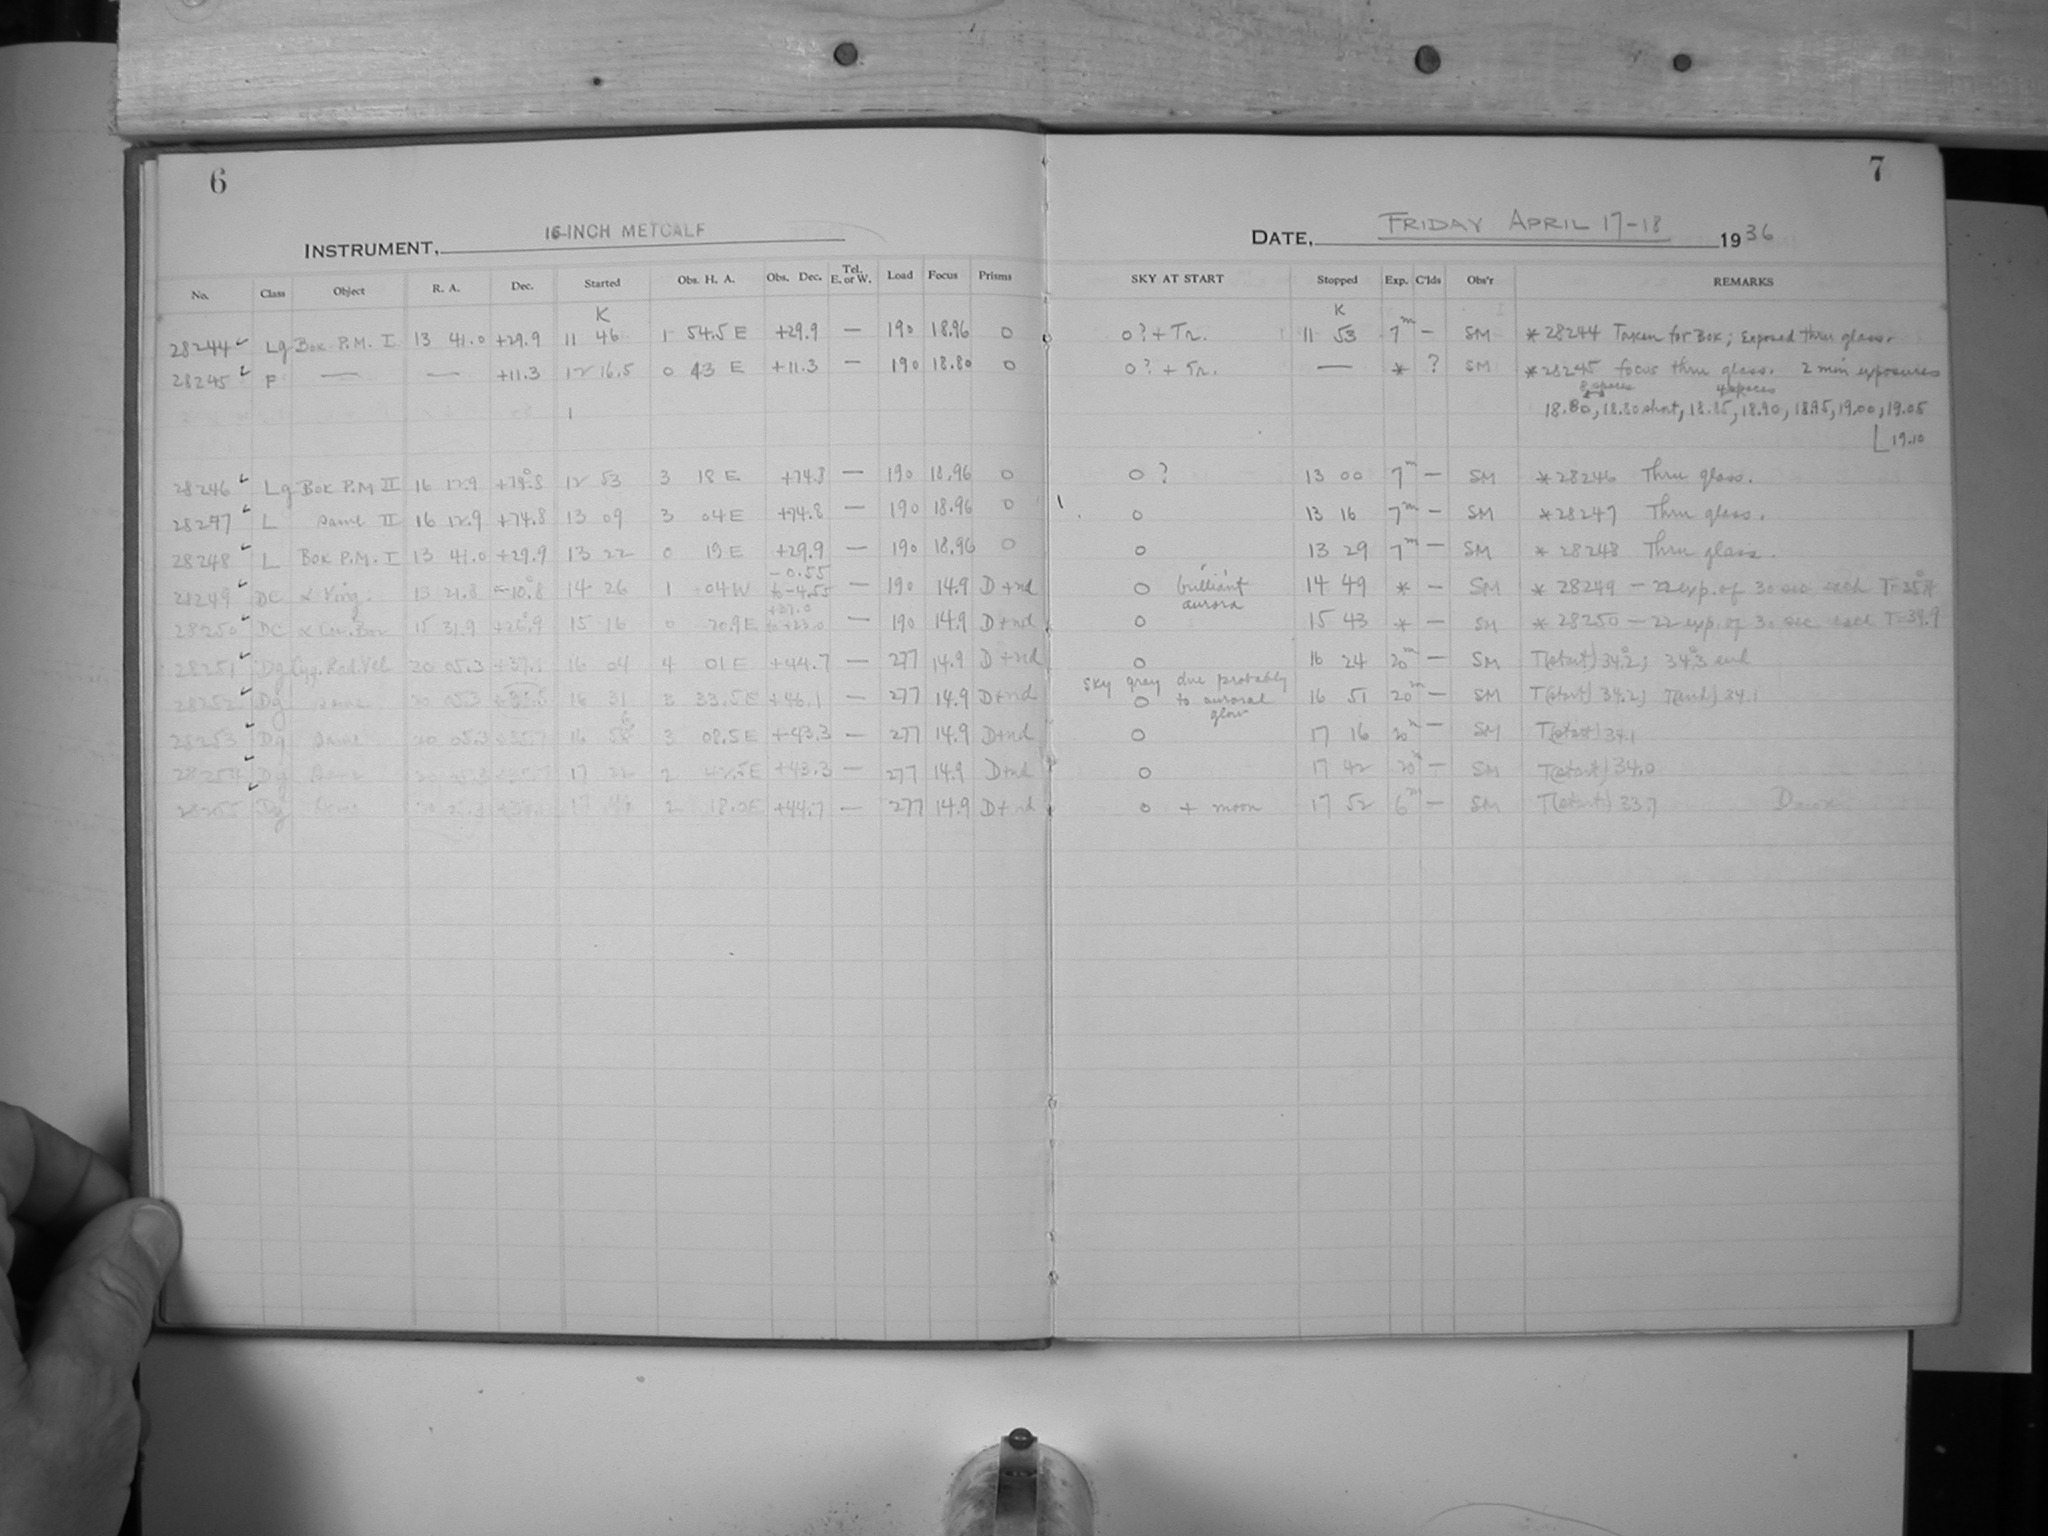 6
7
16-INCH METCALF
INSTRUMENT,
FRIDAY APRIL 17-18
DATE, 1936
No. Class Object R. A. Dec. Started Obs. H. A. Obs. Dec. Tel. E. or W. Load Focus Prisms SKY AT START Stopped Exp. C'lds Obs'r REMARKS
K K
28244 Lg Bok P.M. I 13 41.0 +29.9 11 46 1 54.5 E +29.9 — 190 18.96 0 0? + Tr. 11 53 7m — SM *28244 Taken for Bok; Exposed thru glass.
28245 F — — +11.3 12 16.5 0 43 E +11.3 — 190 18.80 0 0? + Tr. — * ? SM *28245 focus thru glass. 2 min exposures
8 spaces 4 spaces
1 18.80, 18.80 short, 18.85, 18.90, 18.95, 19.00, 19.05
19.10
28246 Lg Bok P.M II 16 12.9 +74.8 12 53 3 18 E +74.8 — 190 18.96 0 0 ? 13 00 7m — SM *28246 Thru glass.
28247 L Same II 16 12.9 +74.8 13 09 3 04 E +74.8 — 190 18.96 0 0 13 16 7m — SM *28247 Thru glass.
28248 L Bok P.M. I 13 41.0 +29.9 13 22 0 19 E +29.9 — 190 18.96 0 0 13 29 7m — SM * 28248 Thru glass.
28249 DC α Virg. 13 21.8 -10.8 14 26 1 04 W -0.55 to -4.55 — 190 14.9 D+nd 0 brilliant aurora 14 49 * — SM * 28249 — 22 exp. of 30 sec each
28250 DC α Cor. Bor 15 31.9 +26.9 15 16 0 20.9 E — 190 14.9 D+nd 0 15 43 * — SM * 28250 — 22 exp. of 30 sec each T=34.9
28251 Dg Cyg. Rad. Vel 20 05.3 16 04 4 01 E +44.7 — 277 14.9 D+nd 0 16 24 20m — SM T(start) 34.2; 34.3 end
28252 Dg Same 20 05.3 16 31 3 33.5 E +46.1 — 277 14.9 D+nd sky gray due probably 0 to auroral glow 16 51 20m — SM T(start) 34.2; T(end) 34.1
28253 Dg Same 20 05.3 16 3 08.5 E +43.3 — 277 14.9 D+nd 0 17 16 20m — SM T(start) 34.1
28254 Dg Same 17 22 2 42.5 E +43.3 — 277 14.9 D+nd 0 17 42 20m — SM T(start) 34.0
28255 Dg Same 17 2 18.0 E +44.7 — 277 14.9 D+nd 0 + moon 17 52 6m — SM T(start) 33.7 Dawn